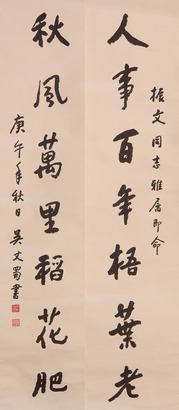 振文同志雅属即命
人事百年梧叶老
秋风萬里稻花肥
庚午年秋日吴丈蜀書